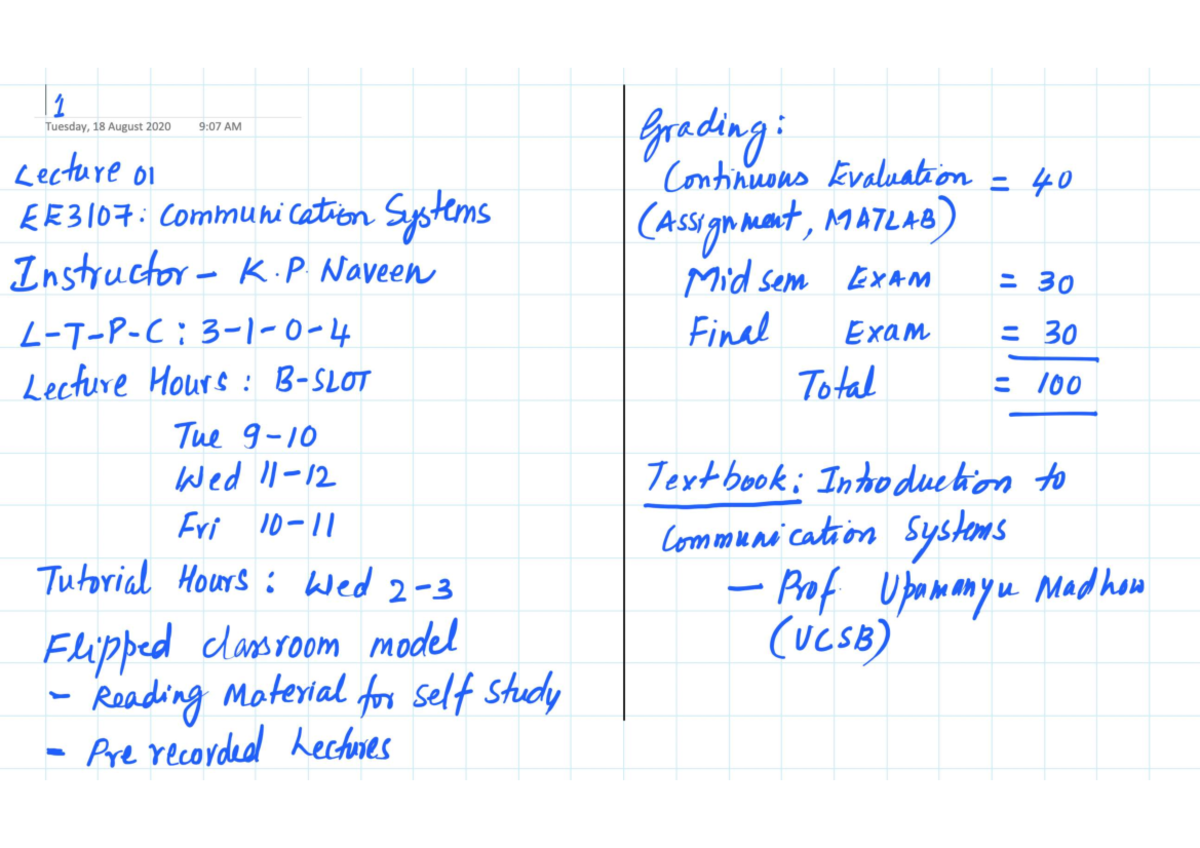 1
Tuesday, 18 August 2020 9:07 AM
Lecture 01
EE3107: Communication Systems
Instructor - K.P. Naveen
L-T-P-C: 3-1-0-4
Lecture Hours: B-SLOT
Tue 9-10
Wed 11-12
Fri 10-11
Tutorial Hours: Wed 2-3
Flipped classroom model
- Reading Material for self study
- Pre recorded Lectures
Grading:
Continuous Evaluation = 40
(Assignment, MATLAB)
Mid sem EXAM = 30
Final Exam = 30
Total = 100
Textbook: Introduction to
Communication Systems
- Prof. Upamanyu Madhow
(UCSB)